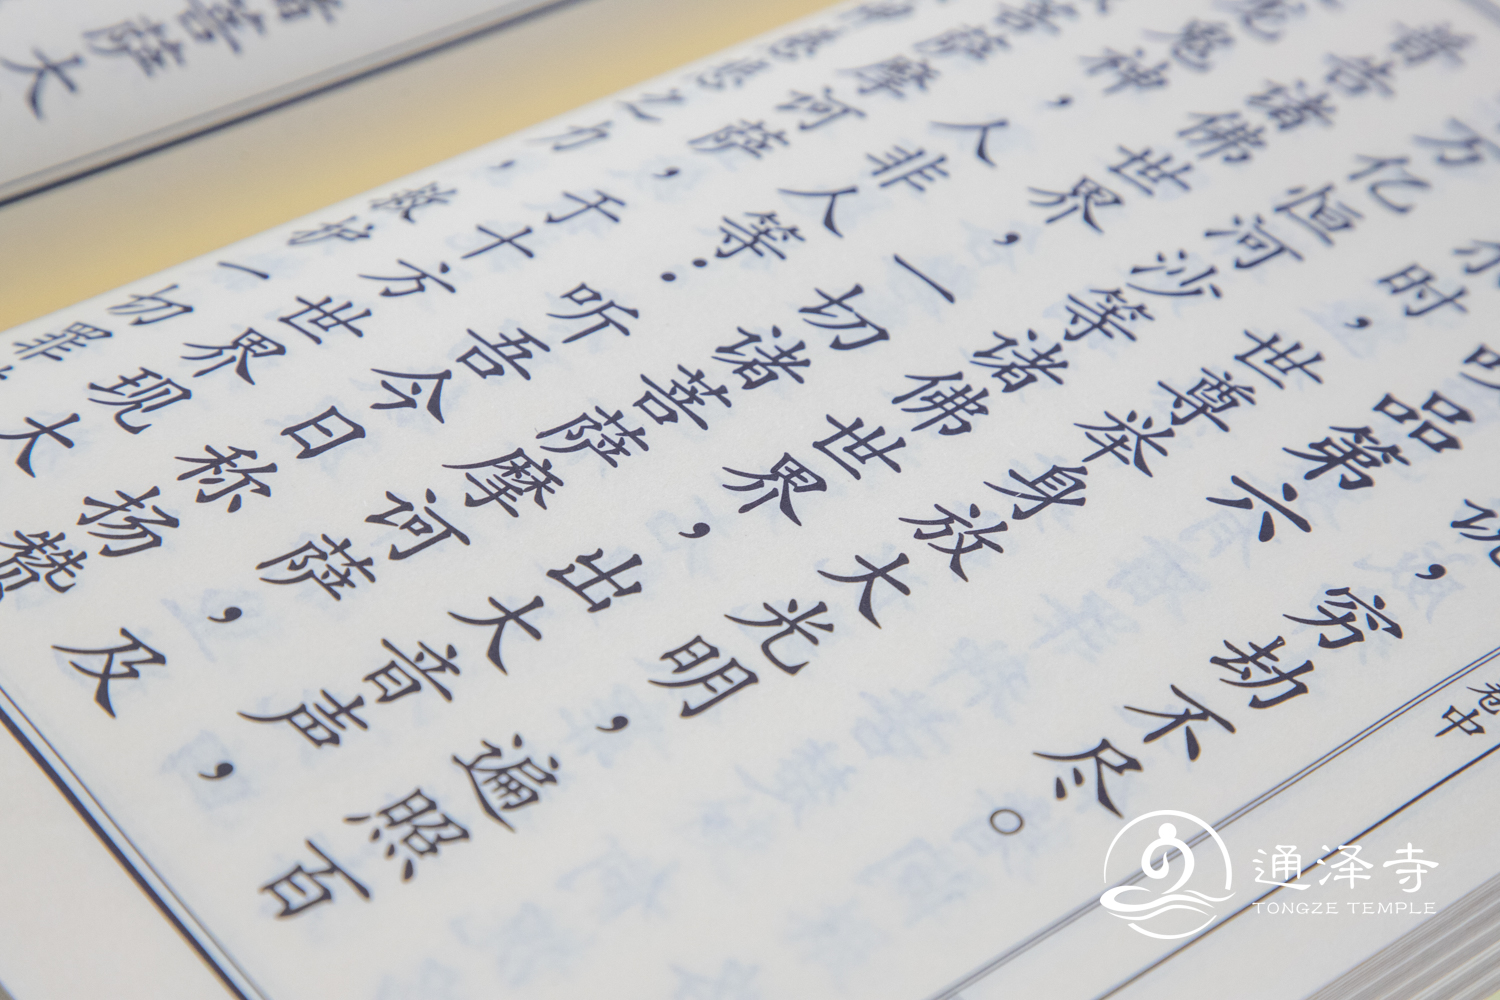 说，穷劫不尽。
品第六
尔时，世尊举身放大光明，遍照百
万亿恒河沙等诸佛世界，出大音声，
普告诸佛世界，一切诸菩萨摩诃萨，及
龙鬼神，人非人等：听吾今日称扬赞
菩萨摩诃萨，于十方世界现大
神慈悲之力，救护一切罪
菩萨大
卷中
通泽寺
TONGZE TEMPLE